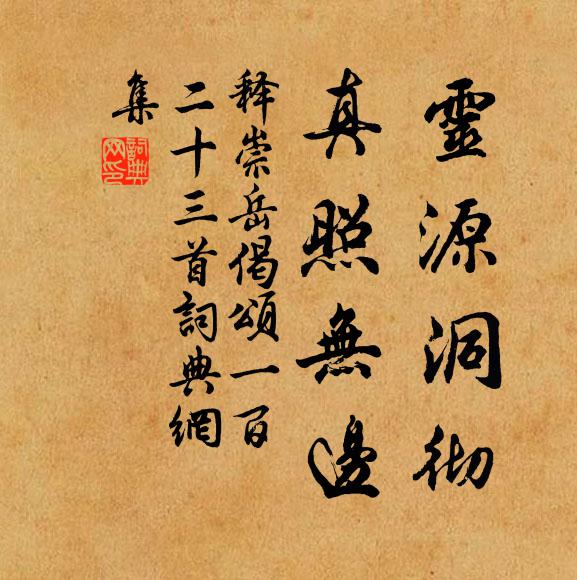 靈源洞彻
真照無邊
释崇岳偈頌一百
二十三首詞典網
集
詞典
网印